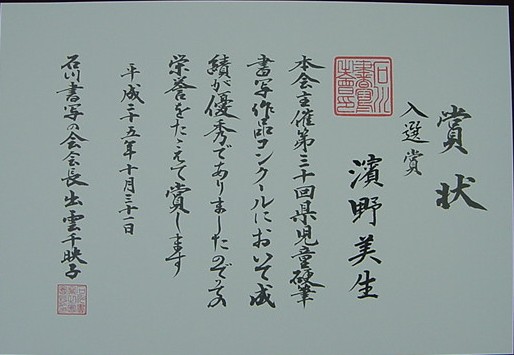 賞状
入選賞
濱野美生
本会主催第三十回県児童硬筆
書写作品コンクールにおいて成
績が優秀でありましたのでその
栄誉をたたえて賞します
平成二十五年十月三十一日
石川書写の会会長出雲千映子